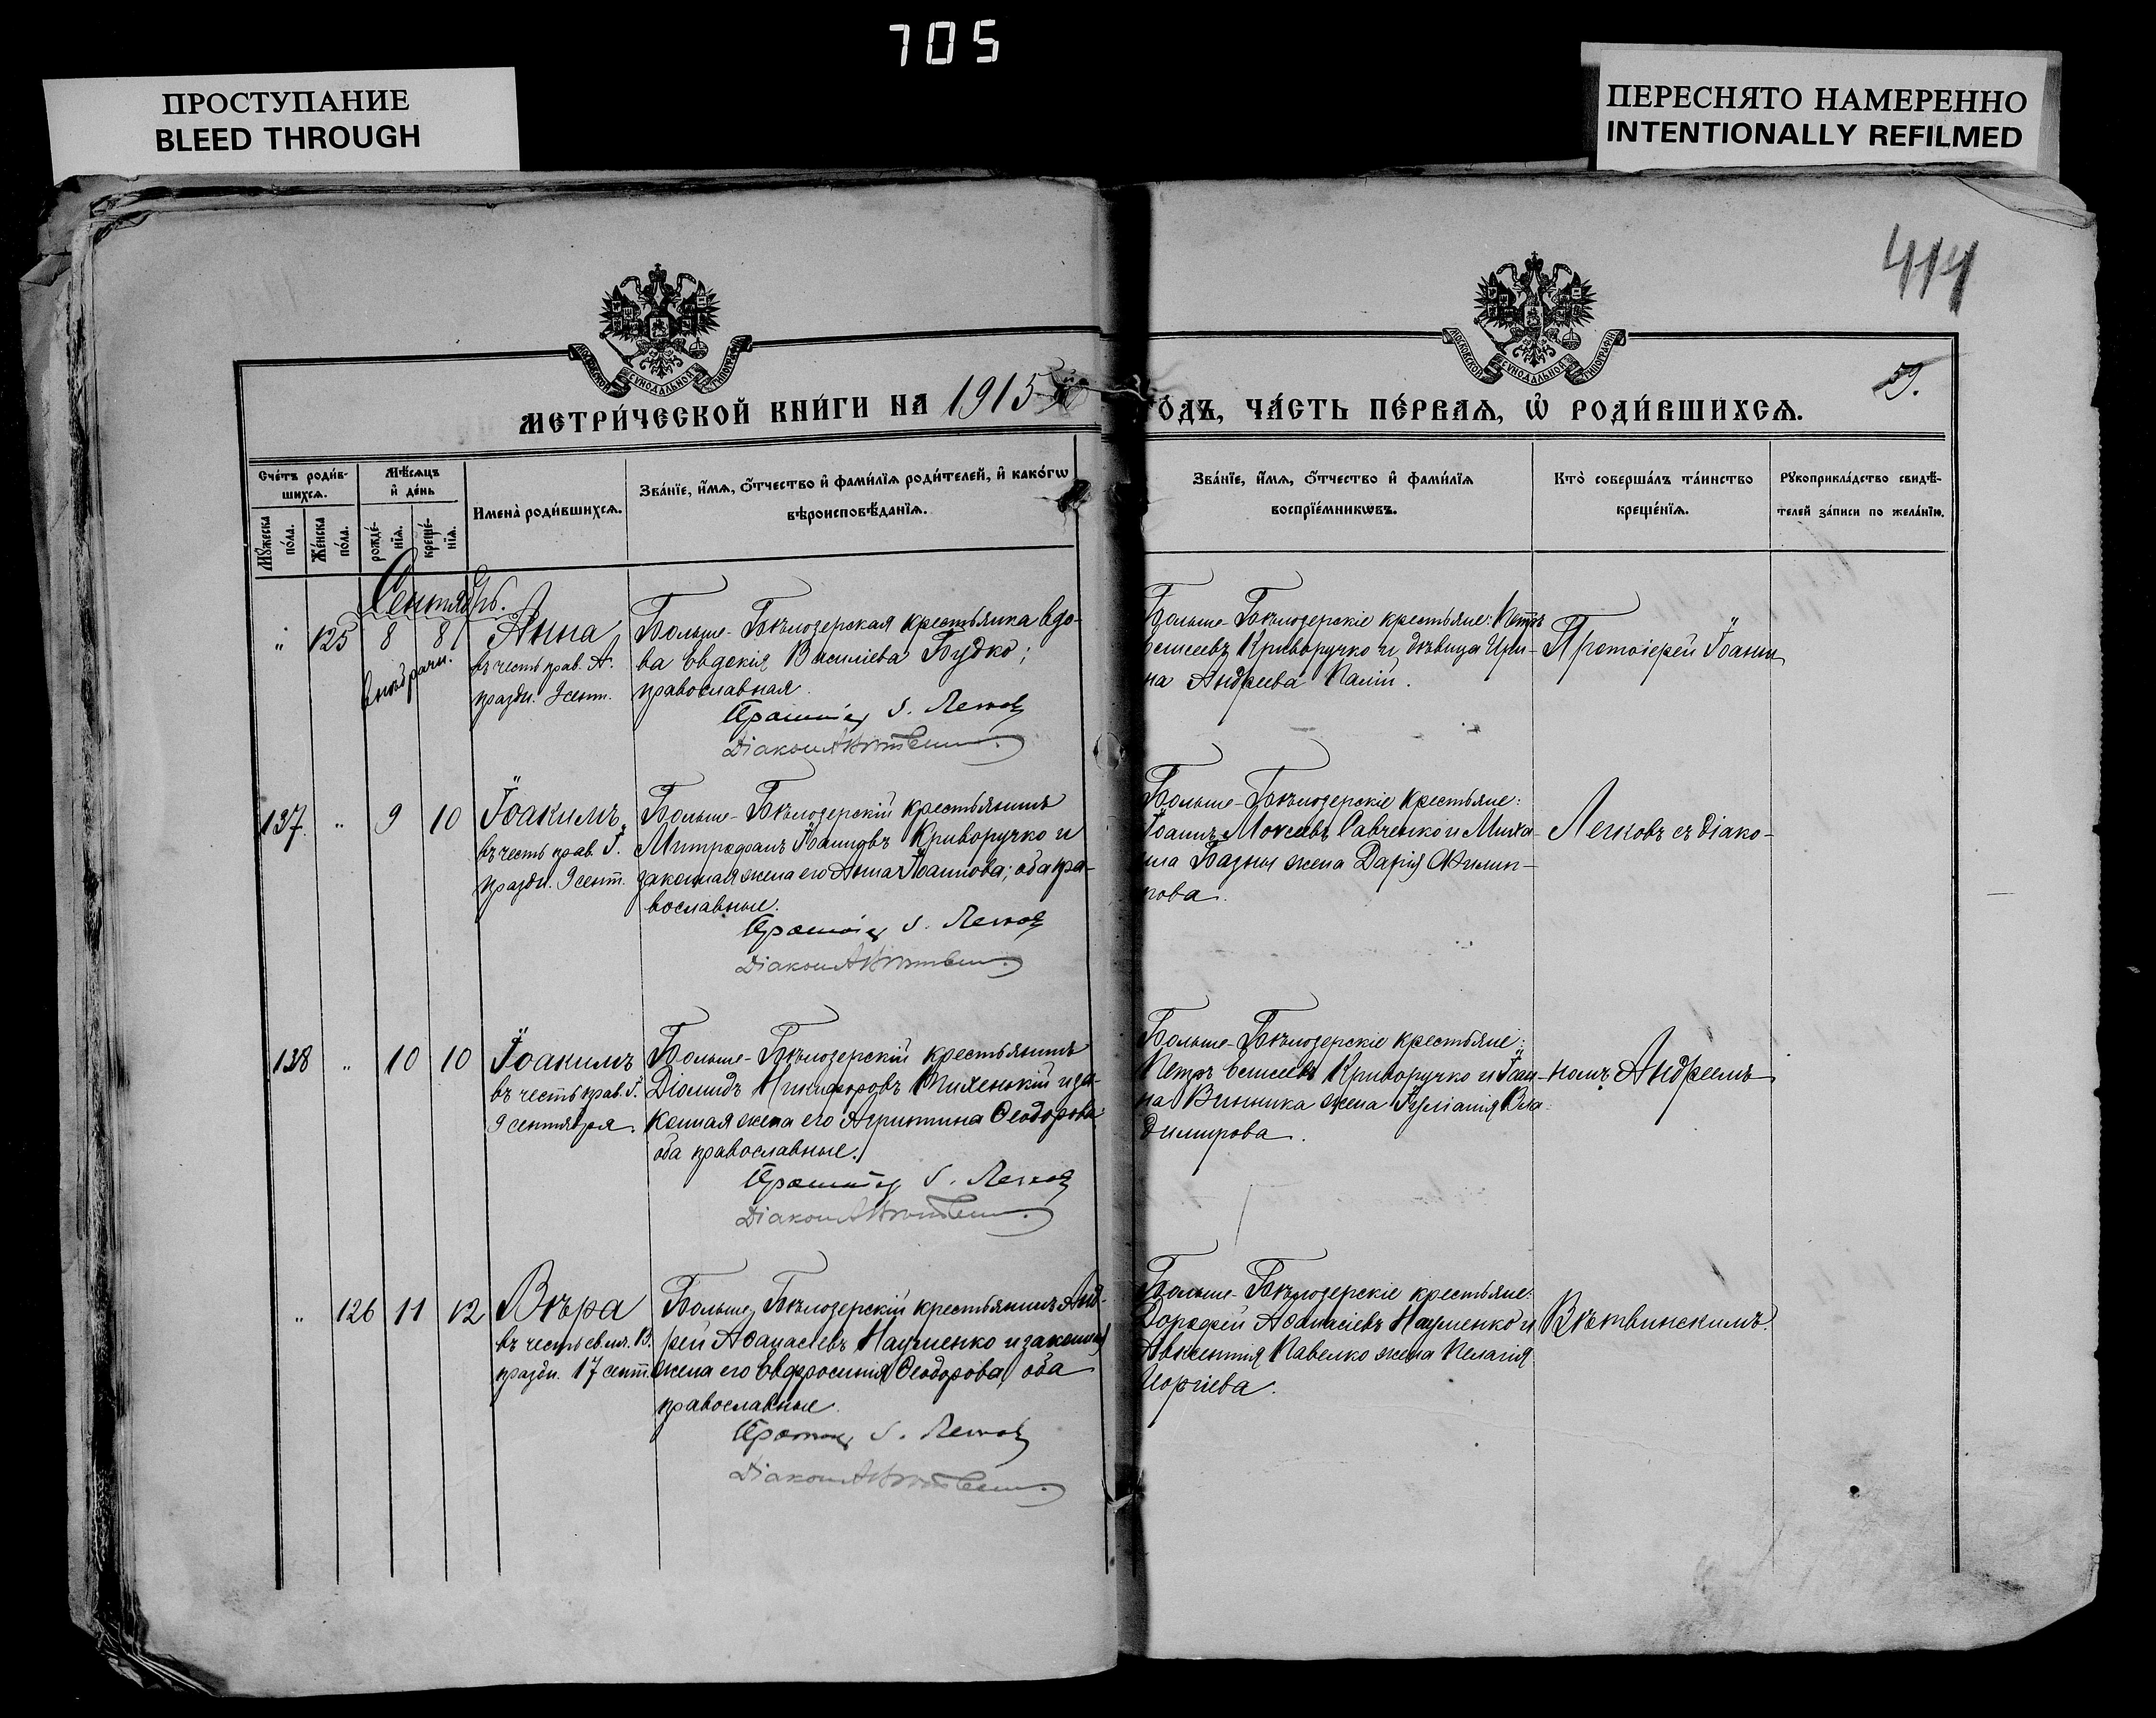 705
ПРОСТУПАНИЕ
BLEED THROUGH
ПЕРЕСНЯТО НАМЕРЕННО
INTENTIONALLY REFILMED
414
59.
МОСКОВСКОЙ СѴНОДАЛЬНОЙ ТИПОГРАФІИ
МОСКОВСКОЙ СѴНОДАЛЬНОЙ ТИПОГРАФІИ
МЕТРИ́ЧЕСКОЙ КНИ́ГИ НА 1915
ОДЪ, ЧА́СТЬ ПЕ́РВАЯ, Ѡ҆ РОДИ́ВШИХСѦ.
Сче́тъ роди́в-
шихсѧ.
Мꙋ́жеска по́ла.
Же́нска по́ла.
Мѣ́сѧцъ
и҆ де́нь
рожде́-
нїѧ.
креще́-
нїѧ.
Имена̀ роди́вшихсѧ.
Зва́нїе, и҆́мѧ, о҆́тчество и҆ фами́лїѧ роди́телей, и҆ како́гѡ
вѣроисповѣ́данїѧ.
Зва́нїе, и҆́мѧ, о҆́тчество и҆ фами́лїѧ
воспрїе́мникѡвъ.
Кто̀ соверша́лъ та́инство
креще́нїѧ.
Рꙋкоприкла́дство свидѣ́-
телей за́писи по жела́нїю.
Сентябрь.
" 125 8 8
внѣбрачн.
Анна
въ честь прав. А.
праздн. 9 сент.
Больше-Бѣлозерская крестьянка вдо-
ва Евдокія Василіева Будко;
православная.
Протоіер. І. Легков
Діакон А Вѣтвин
Больше-Бѣлозерскіе крестьяне: Петръ
Елисеевъ Криворучко и дѣвица Ири-
на Андреева Палій.
Протоіерей Іоаннъ
137. " 9 10
Іоакимъ
въ честь прав. І.
праздн. 9 сент.
Больше-Бѣлозерскій крестьянинъ
Митрофанъ Іоанновъ Криворучко и
законная жена его Анна Іоаннова; оба пра-
вославные.
Протоіер. І. Легков
Діакон А Вѣтвин
Больше-Бѣлозерскіе крестьяне:
Іоаннъ Моисеевъ Савченко и Миха-
ила жена Дарія Филип-
пова.
Легковъ съ діако-
138 " 10 10
Іоакимъ
въ честь прав. І.
9 сентября.
Больше-Бѣлозерскій крестьянинъ
Діомидъ Никифоровъ Тихенькій и за-
конная жена его Агриппина Ѳеодорова;
оба православные.
Протоіер. І. Легков
Діакон А Вѣтвин
Больше-Бѣлозерскіе крестьяне:
Петръ Елисеевъ Криворучко и Іоан-
на Винника жена Іуліанія Вла-
димирова.
номъ Андреемъ
" 126 11 12
Вѣра
въ честь св. мч. В.
праздн. 17 сент.
Больше-Бѣлозерскій крестьянинъ Анд-
рей Аѳанасіевъ Науменко и законная
жена его Евфросинія Ѳеодорова, оба
православные
Протоіер. І. Легков
Діакон А Вѣтвин
Больше-Бѣлозерскіе крестьяне:
Дорофей Аѳанасіевъ Науменко и
Авксентія Павелко жена Пелагія
Георгіева.
Вѣтвинскимъ.